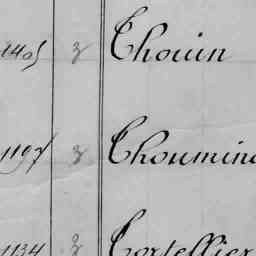 1405 3 Thouin
1197 3 Thoumin
1134 3 Tortellier